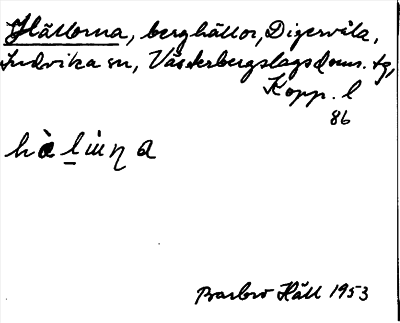 Hällorna, berghällor, Digervila,
Ludvika sn, Västerbergslags doms. tg,
Kopp. l
86
hàluṇa
Barbro Häll 1953